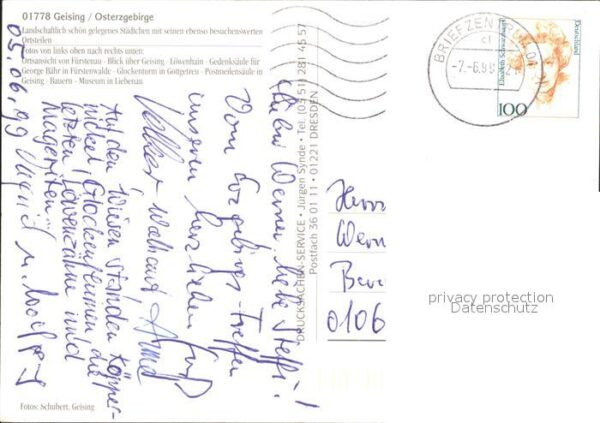 01778 Geising / Osterzgebirge
Landschaftlich schön gelegenes Städtchen mit seinen ebenso besuchenswerten
Ortsteilen
Fotos von links oben nach rechts unten:
Ortsansicht von Fürstenau · Blick über Geising · Löwenhain · Gedenksäule für
George Bähr in Fürstenwalde · Glockenturm in Gottgetreu · Postmeilensäule in
Geising · Bauern - Museum in Liebenau
Lieber Werner, liebe Steffi!
Vom Erzgebirgs-Treffen
unseren herzlichen Gruß
Volker Waltraud
Auf den Wiesen standen Köpper-
nickel, Glockenblumen, die
letzten Löwenzähne und
Margeriten.
05.06.99
DRUCKSACHEN-SERVICE · Jürgen Synde · Tel. (03 51) 281 45 57
Postfach 36 01 11 · 01221 DRESDEN
Herrn
Wern
0106
BRIEFZENTRUM 01
-7.-6.99
Deutschland
Elisabeth Schwarzhaupt
100
privacy protection
Datenschutz
Fotos: Schubert, Geising